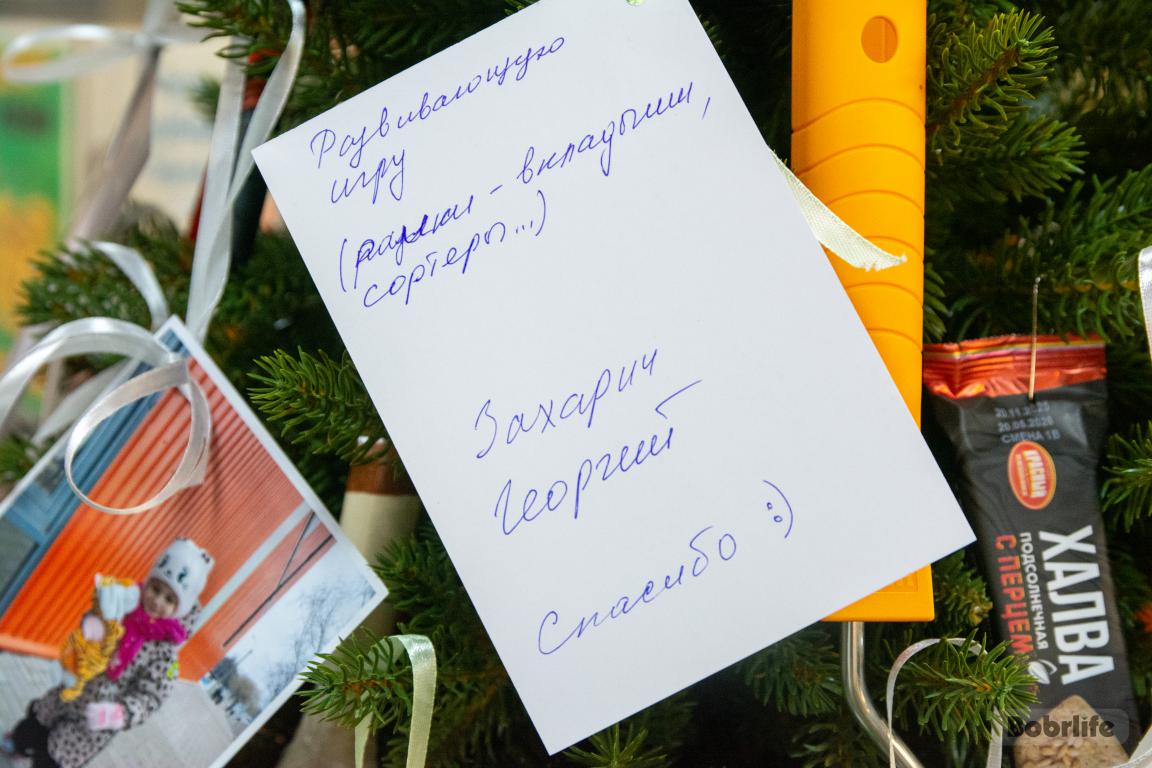 Развивающую
игру
(рамки - вкладыши,
сортеры...)
Захарич
Георгий
Спасибо :)
20.11.2025
20.05.2026
СМЕНА 1В
КРАСНЫЙ
ХАЛВА
ПОДСОЛНЕЧНАЯ
С ПЕРЦЕМ
Dobrlife